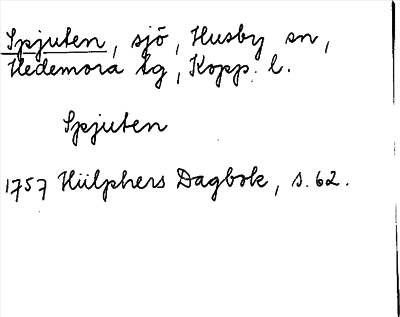 Spjuten, sjö, Husby sn,
Hedemora tg, Kopp. l.
Spjuten
1757 Hülphers Dagbok, s. 62.